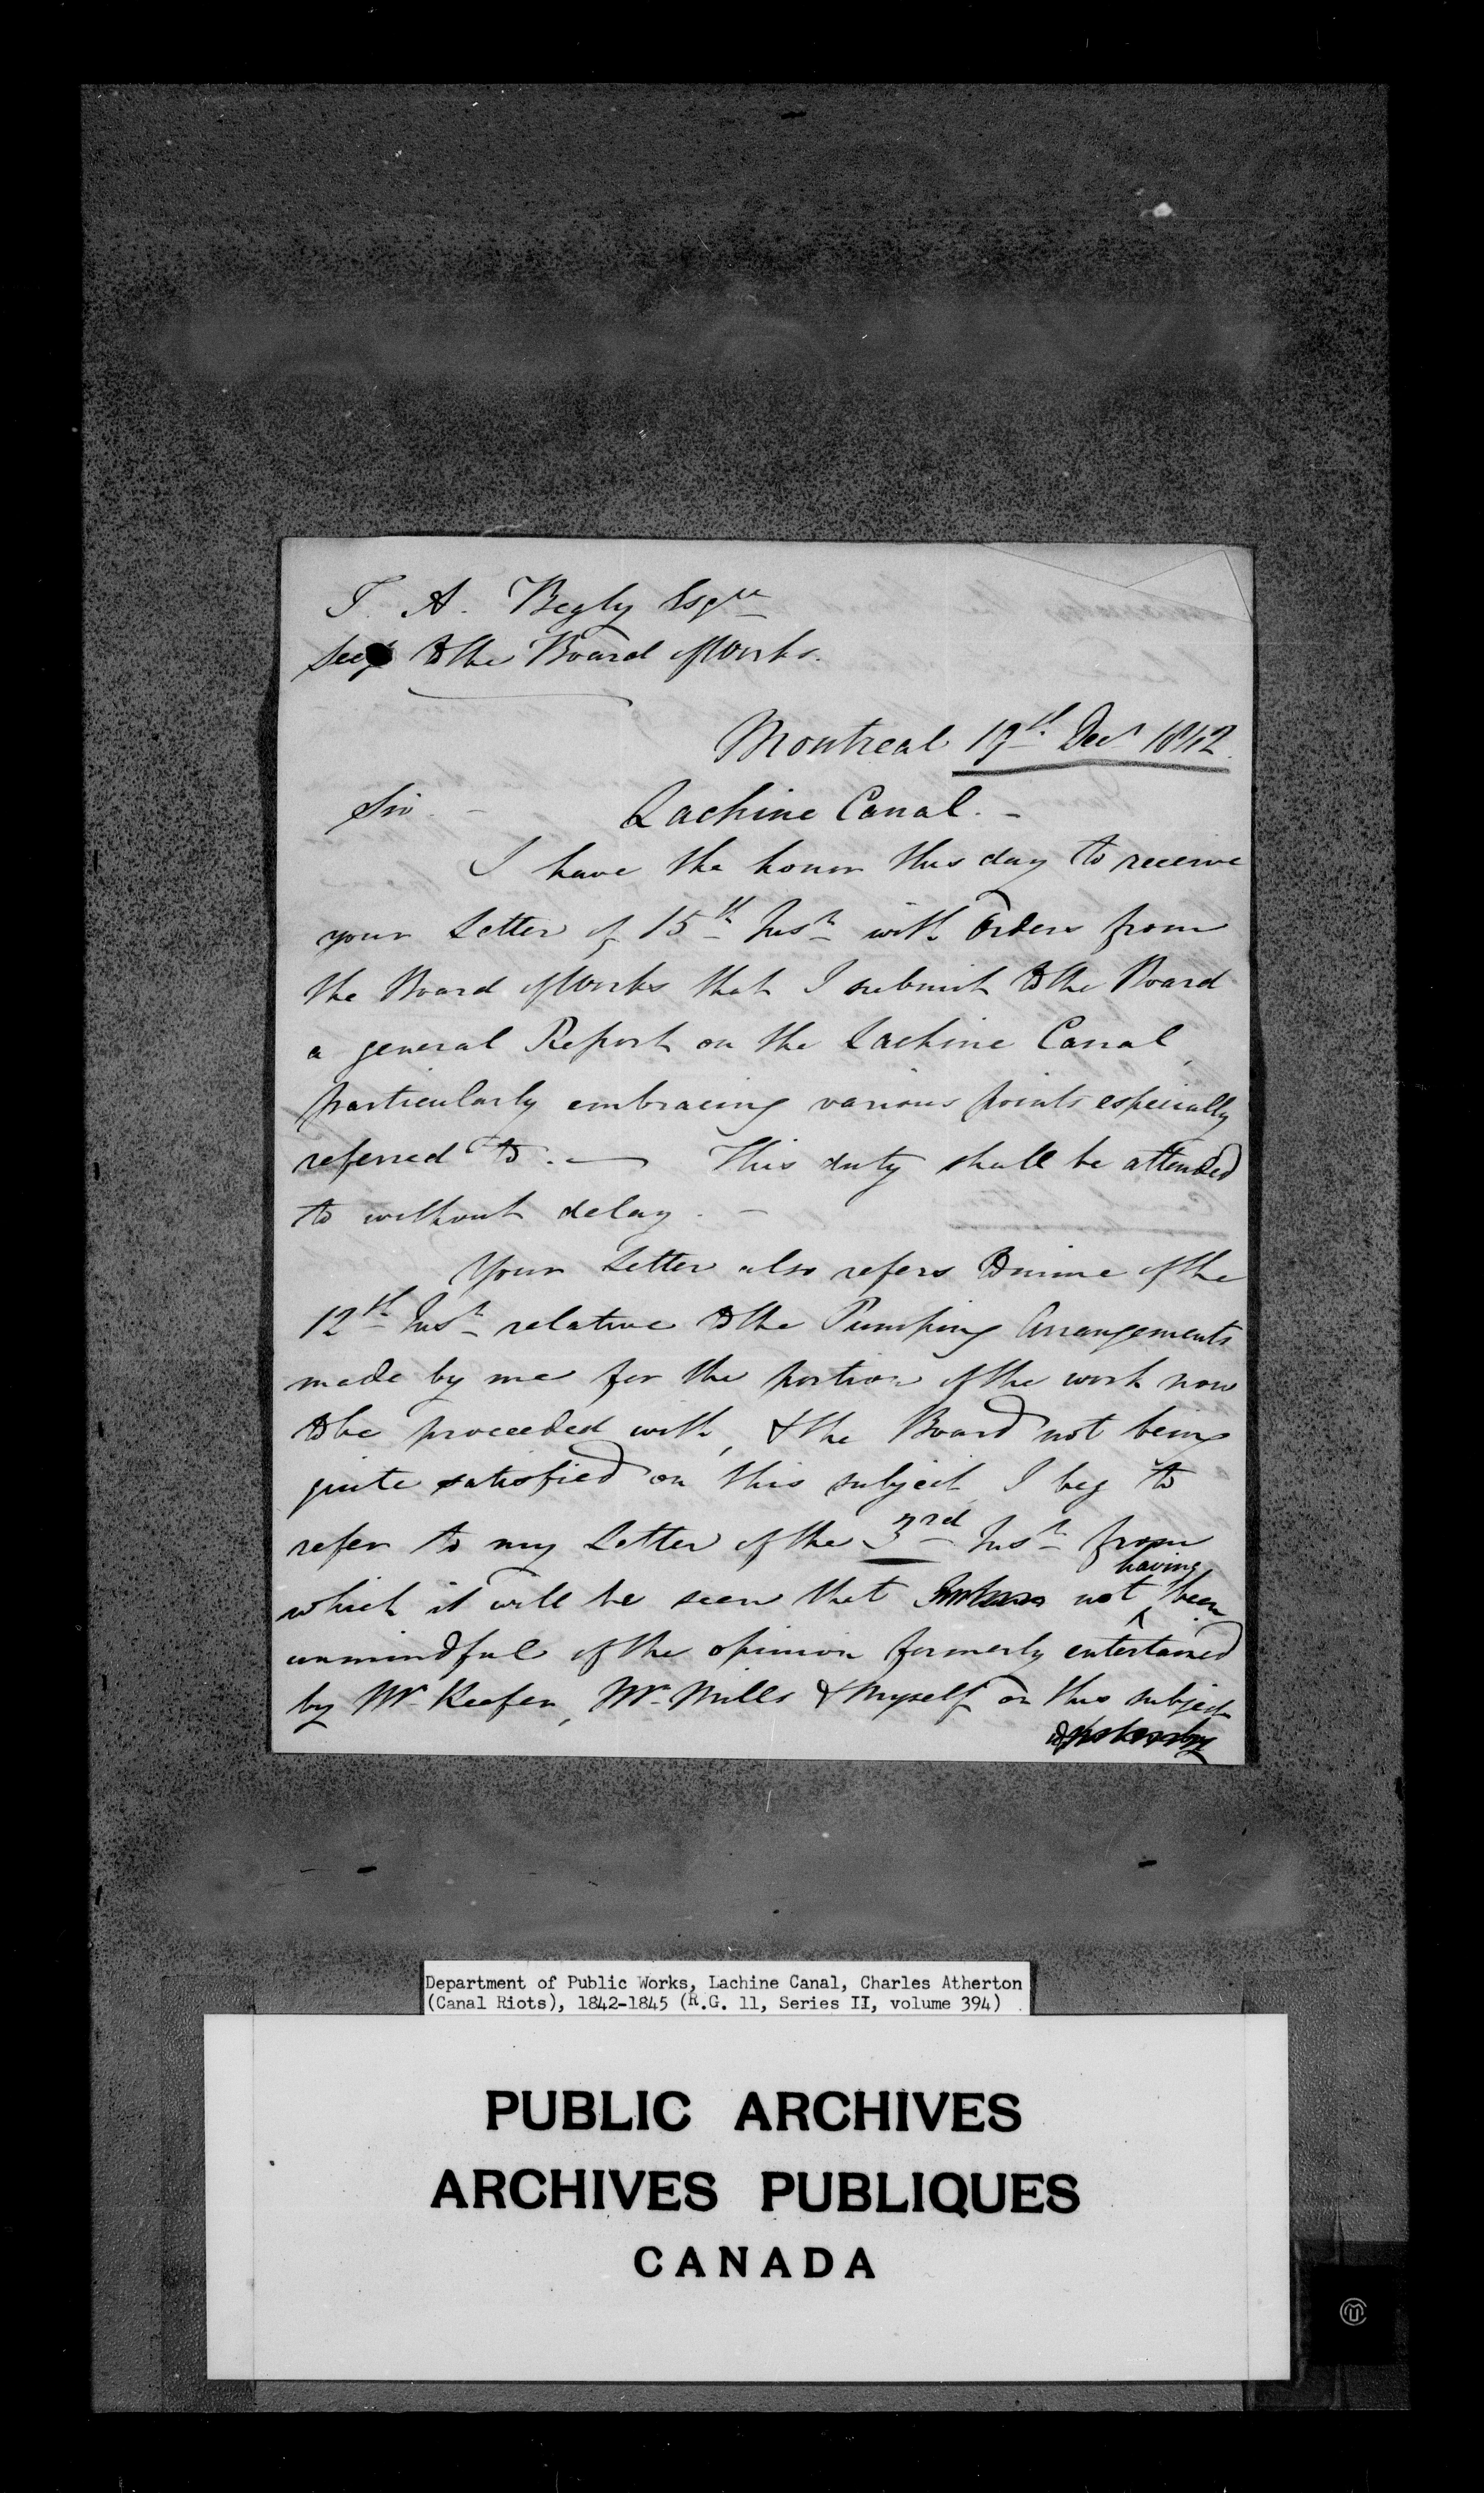 T. A. Begly Esqre
Secy to the Board of Works.
Montreal 19th Decr 1842.
Sir. - Lachine Canal. -
I have the honor this day to receive
your Letter of 15th Inst with Orders from
the Board of Works that I submit to the Board
a general Report on the Lachine Canal,
particularly embracing various points especially
referred to. — This duty shall be attended
to without delay. -
Your Letter also refers to mine of the
12th Inst relative to the Pumping Arrangements
made by me for the portion of the work now
to be proceeded with, & the Board not being
quite satisfied on this subject I beg to
refer to my Letter of the 3rd Inst from
having
which it will be seen that not been
unmindful of the opinion formerly entertained
by Mr Keefer, Mr Mills & Myself on this subject
Department of Public Works, Lachine Canal, Charles Atherton
(Canal Riots), 1842-1845 (R.G. 11, Series II, volume 394)
PUBLIC ARCHIVES
ARCHIVES PUBLIQUES
CANADA